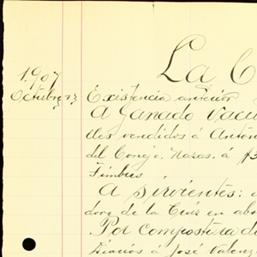 La C
1907
Octubre 17 Existencia anterior
A Ganado Vacu
dos vendidos á Antón
del Conejo. Rosas. á $3
Timbres
A Sirvientes:
dor de la Cruz en abo
Por compostura d
á José Valenz